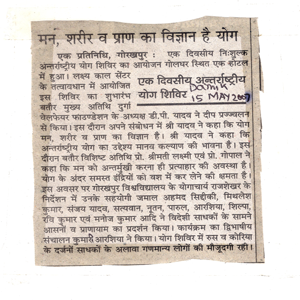 मन, शरीर व प्राण का विज्ञान है योग
एक प्रतिनिधि, गोरखपुर : एक दिवसीय निःशुल्क
अन्तर्राष्ट्रीय योग शिविर का आयोजन गोलघर स्थित एक होटल
में हुआ। लक्ष्य काल सेंटर
के तत्वावधान में आयोजित
इस शिविर का शुभारंभ
बतौर मुख्य अतिथि दुर्गा
एक दिवसीय अन्तर्राष्ट्रीय
योग शिविर
15 MAY 2007
वेलफेयर फाउण्डेशन के अध्यक्ष डी.पी. यादव ने दीप प्रज्ज्वलन
से किया। इस दौरान अपने संबोधन में श्री यादव ने कहा कि योग
मन, शरीर व प्राण का विज्ञान है। श्री यादव ने कहा कि
अन्तर्राष्ट्रीय योग का उद्देश्य मानव कल्याण की भावना है। इस
दौरान बतौर विशिष्ट अतिथि प्रो. श्रीमती लक्ष्मी एवं प्रो. गोपाल ने
कहा कि मन को अन्तर्मुखी करना ही प्रत्याहार की अवस्था है।
योग के अंदर समस्त इंद्रियों को वश में कर लेने की क्षमता है।
इस अवसर पर गोरखपुर विश्वविद्यालय के योगाचार्य राजशेखर के
निर्देशन में उनके सहयोगी जमाल अहमद सिद्दीकी, मिथलेश
कुमार, संजय यादव, सत्यवान, नूतन, पारुल, आरशिया, शिल्पा,
रवि कुमार एवं मनोज कुमार आदि ने विदेशी साधकों के सामने
आसनों व प्राणायाम का प्रदर्शन किया। कार्यक्रम का द्विभाषीय
संचालन कुमारी आरशिया ने किया। योग शिविर में रुस व कोरिया
के दर्जनों साधकों के अलावा गणमान्य लोगों की मौजूदगी रही।